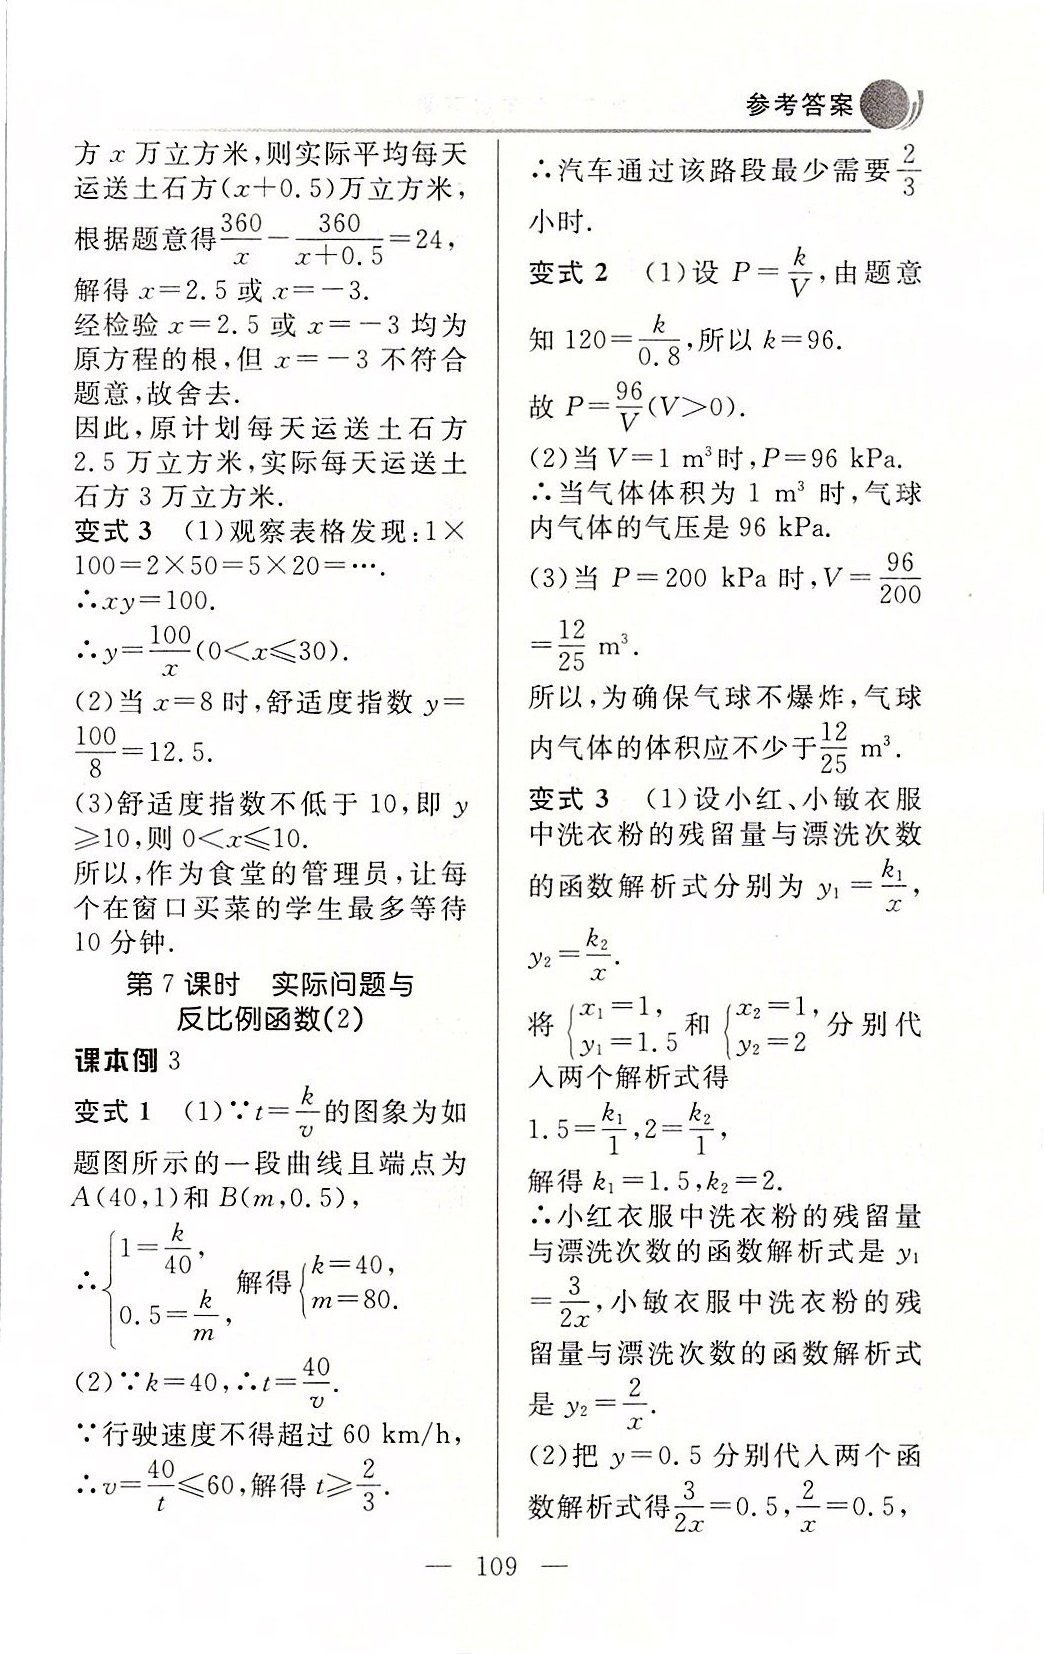 参考答案
方 x 万立方米,则实际平均每天
运送土石方(x+0.5)万立方米,
根据题意得360/x－360/(x+0.5)=24,
解得 x=2.5 或 x=－3.
经检验 x=2.5 或 x=－3 均为
原方程的根,但 x=－3 不符合
题意,故舍去.
因此,原计划每天运送土石方
2.5 万立方米,实际每天运送土
石方 3 万立方米.
变式 3 (1)观察表格发现:1×
100=2×50=5×20=….
∴xy=100.
∴y=100/x(0<x≤30).
(2)当 x=8 时,舒适度指数 y=
100/8=12.5.
(3)舒适度指数不低于 10,即 y
≥10,则 0<x≤10.
所以,作为食堂的管理员,让每
个在窗口买菜的学生最多等待
10 分钟.
第 7 课时 实际问题与
反比例函数(2)
课本例 3
变式 1 (1)∵t=k/v的图象为如
题图所示的一段曲线且端点为
A(40,1)和 B(m,0.5),
∴{1=k/40, 0.5=k/m, 解得{k=40, m=80.
(2)∵k=40,∴t=40/v.
∵行驶速度不得超过 60 km/h,
∴v=40/t≤60,解得 t≥2/3.
∴汽车通过该路段最少需要2/3
小时.
变式 2 (1)设 P=k/V,由题意
知 120=k/0.8,所以 k=96.
故 P=96/V(V>0).
(2)当 V=1 m³时,P=96 kPa.
∴当气体体积为 1 m³ 时,气球
内气体的气压是 96 kPa.
(3)当 P=200 kPa 时,V=96/200
=12/25 m³.
所以,为确保气球不爆炸,气球
内气体的体积应不少于12/25 m³.
变式 3 (1)设小红、小敏衣服
中洗衣粉的残留量与漂洗次数
的函数解析式分别为 y₁=k₁/x,
y₂=k₂/x.
将{x₁=1, y₁=1.5和{x₂=1, y₂=2分别代
入两个解析式得
1.5=k₁/1,2=k₂/1,
解得 k₁=1.5,k₂=2.
∴小红衣服中洗衣粉的残留量
与漂洗次数的函数解析式是 y₁
=3/2x,小敏衣服中洗衣粉的残
留量与漂洗次数的函数解析式
是 y₂=2/x.
(2)把 y=0.5 分别代入两个函
数解析式得3/2x=0.5,2/x=0.5,
— 109 —